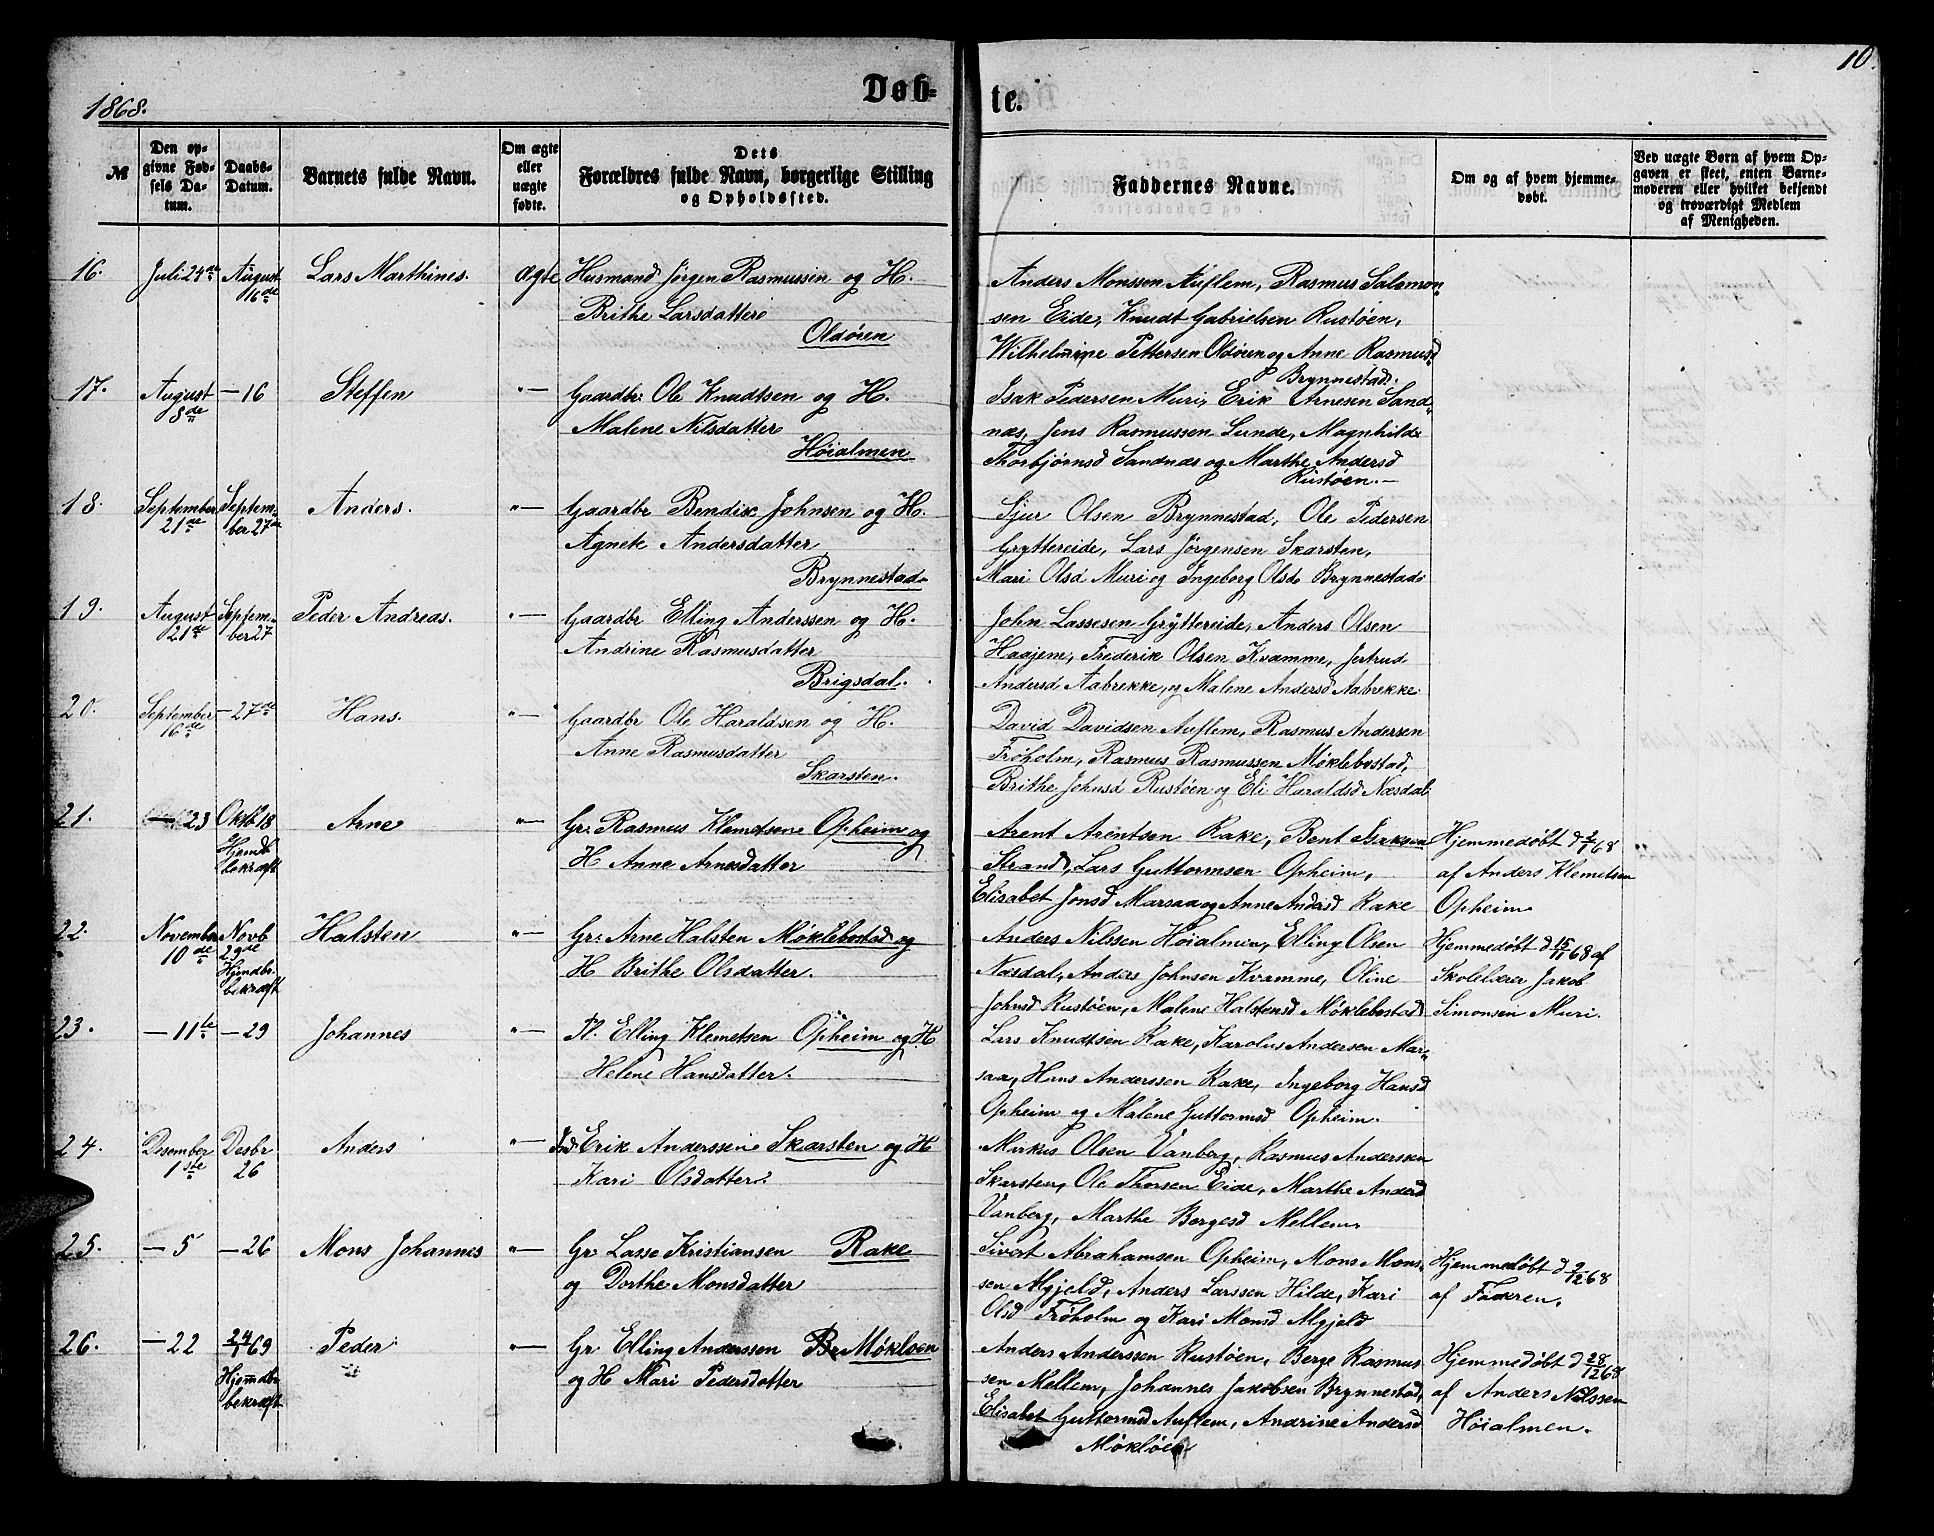 1868.
Døb-
te.
10.
№
Den op-
givne Fød-
sels Da-
tum.
Daabs-
Datum.
Barnets fulde Navn.
Om ægte
eller
uægte
fødte.
Dets
Forældres fulde Navn, borgerlige Stilling
og Opholdssted.
Faddernes Navne.
Om og af hvem hjemme-
døbt.
Ved uægte Børn af hvem Op-
gaven er skeet, enten Barne-
moderen eller hvilket bekjendt
og troværdigt Medlem
af Menigheden.
16. Juli 24de August Lars Marthines. Ægte Husmand Jørgen Rasmussen og H.
16de Brithe Larsdatter
Oldøren
Anders Monssen Auflem, Rasmus Salomon-
sen Eide, Knudt Gabrielsen Rustøen,
Wilhelmine Pettersen Oldøren og Anne Rasmusd
Brynnestad.
17. August — 16 Steffen "— Gaardbr: Ole Knudtsen og H.
8de Malene Nilsdatter
Høialmen
Isak Pedersen Muri, Erik Arnesen Sand-
næs, Jens Rasmussen Sunde, Magnhilde
Thorbjørnsd Sandnæs og Marthe Andersd
Rustøen.—
18. September Septem- Anders. "— Gaardbr Bendix Johnsen og H.
21de ber 27de Agnete Andersdatter
Brynnestad
Sjur Olsen Brynnestad, Ole Pedersen
Gryttereide, Lars Jørgensen Skarsten,
Mari Olsd Muri og Ingeborg Olsd Brynnestad
19. August Septem- Peder Andreas. "— Gaardbr Elling Anderssen og H.
21de ber 27 Andrine Rasmusdatter
Brigsdal.
John Lassesen Gryttereide, Anders Olsen
Haajem, Frederik Olsen Kvamme, Jertrud
Andersd Aabrekke, og Malene Andersd Aabrekke
20. September — 27de Hans. "— Gaardbr Ole Haraldsen og H.
16de Anne Rasmusdatter
Skarsten.
David Davidsen Auflem, Rasmus Andersen
Frøholm, Rasmus Rasmussen Møklebostad,
Brithe Johnsd Rustøen og Eli Haraldsd Næsdal
21. — 23 Oktb 18 Arne "— Gr: Rasmus Klemetsen Opheim og
Hjemdb bekræft H Anne Arnesdatter
Arent Arentsen Rake, Bent
Strand, Lars Guttormsen Opheim,
Elisabet Jonsd Marsaa og Anne Andersd Rake
Hjemmedøbt d 68
af Anders Klemetsen
Opheim
22. November Novb Halsten "— Gr: Arne Halsten Møklebostad og
10de 29de Hjemdbr. bekræft H Brithe Olsdatter.
Anders Nilssen Høialmen, Elling Olsen
Næsdal, Anders Johnsen Kvamme, Oline
Johnsd Rustøen, Malene Halstensd Møklebostad
Hjemmedøbt d 15/11 68 af
Skolelærer Jakob
Simonsen Muri.
23. — 11te — 29 Johannes "— Pl. Elling Klemetsen Opheim og H
Helene Hansdatter.
Lars Knudtsen Rake, Karolus Andersen Mar-
saa, Hans Anderssen Rake, Ingeborg Hansd
Opheim og Malene Guttormsd Opheim.
24. Desember Desbr Anders "— Ind Erik Anderssen Skarsten og H
1ste 26 Kari Olsdatter
Mirkus Olsen Vanberg, Rasmus Anderssen
Skarsten, Ole Thorsen Eide, Marthe Andersd
Vanberg, Marthe Bergesd Mellem
25. — 5 — 26 Mons Johannes "— Gr: Lasse Kristiansen Rake
og Dorthe Monsdatter
Sivert Abrahamsen Opheim, Mons Mons-
sen Mgjeld, Anders Larssen Hilde, Kari
Olsd Frøholm og Kari Monsd Mgjeld
Hjemmedøbt d 9/12 68
af Faderen.
26. — 22 24/1 69 Peder "— Gr. Elling Anderssen Møkløen
Hjemdbr bekræft og H Mari Pedersdatter
Anders Anderssen Rustøen, Berge Rasmus-
sen Mellem, Johannes Jakobsen Brynnestad,
Elisabet Guttormsd Auflem, Andrine Andersd
Møkløen
Hjemmedøbt d 28/12 68
af Anders Nilssen
Høialmen.